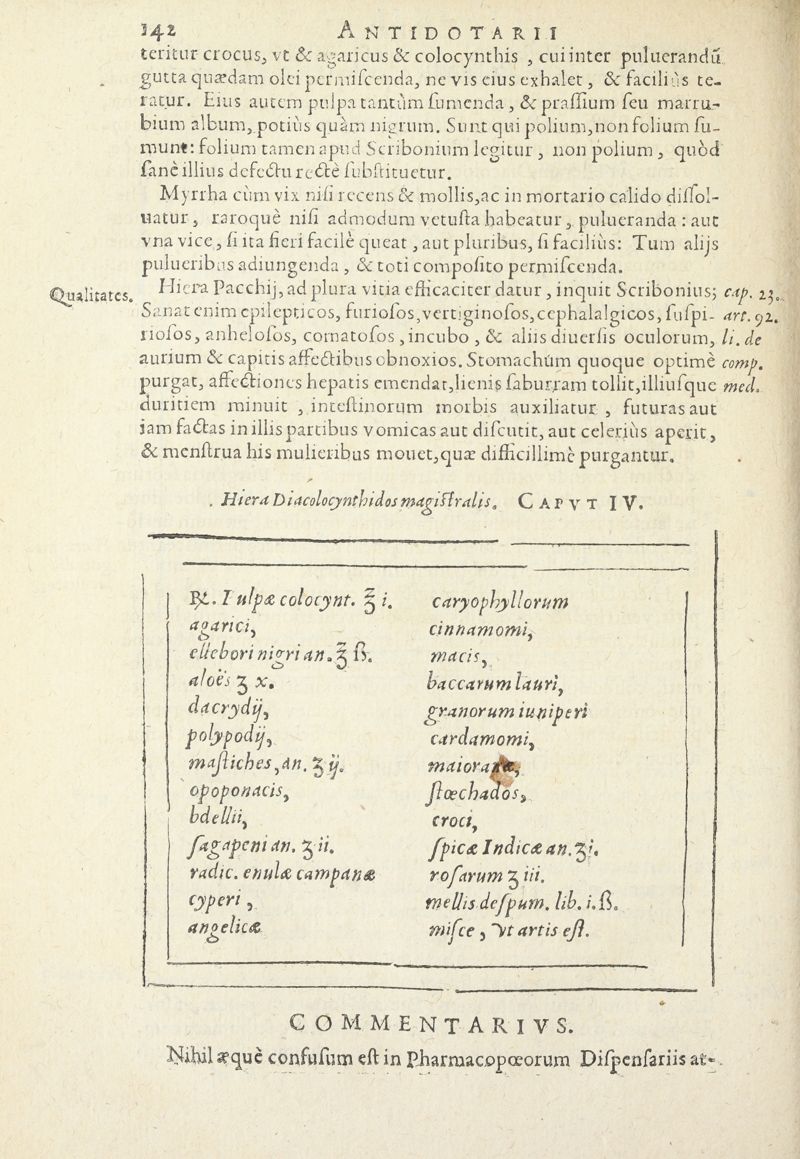 342 ANTIDOTARII
teritur crocus, vt & agaricus & colocynthis , cui inter puluerandũ
gutta quædam olei permiſcenda, ne vis eius exhalet , & faciliùs te-
ratur. Eius autem pulpa tantùm ſumenda , & praſſium ſeu marru-
bium album, potiùs quàm nigrum. Sunt qui polium, non folium ſu-
munt: folium tamen apud Scribonium legitur , non polium , quòd
ſanè illius defectu rectè ſubſtituetur.
Myrrha cùm vix niſi recens & mollis, ac in mortario calido diſſol-
uatur , raroquè niſi admodum vetuſta habeatur , pulueranda : aut
vna vice , ſi ita fieri facilè queat , aut pluribus, ſi faciliùs: Tum alijs
pulueribus adiungenda , & toti compoſito permiſcenda.
Qualitates. Hiera Pacchij, ad plura vitia efficaciter datur , inquit Scribonius; cap. 23.
Sanat enim epilepticos, furioſos, vertiginoſos, cephalalgicos, ſuſpi- art. 92.
rioſos, anheloſos, comatoſos , incubo , & aliis diuerſis oculorum, li. de
aurium & capitis affectibus obnoxios. Stomachùm quoque optimè comp.
purgat, affectiones hepatis emendat, lienis ſaburram tollit, illiuſque med.
duritiem minuit , inteſtinorum morbis auxiliatur , futuras aut
iam factas in illis partibus vomicas aut diſcutit, aut celeriùs aperit ,
& menſtrua his mulieribus mouet, quæ difficillimè purgantur.
Hiera Diacolocynthidos magiſtralis. CAPVT IV.
℞. Pulpæ colocynt. ℥ i.
agarici,
ellebori nigri an. ℥ ß.
aloës ʒ x.
dacrydij,
polypodij,
maſtiches, an. ʒ ij.
opoponacis,
bdellii,
ſagapeni an. ʒ ii.
radic. enulæ campanæ
cyperi ,
angelicæ
caryophyllorum
cinnamomi,
macis,
baccarum lauri,
granorum iuniperi
cardamomi,
maiora
ſtœchados,
croci,
ſpicæ Indicæ an. ʒ i.
roſarum ʒ iii.
mellis deſpum. lib. i. ß.
miſce , vt artis eſt.
COMMENTARIVS.
Nihil æquè confuſum eſt in Pharmacopœorum Diſpenſariis at-